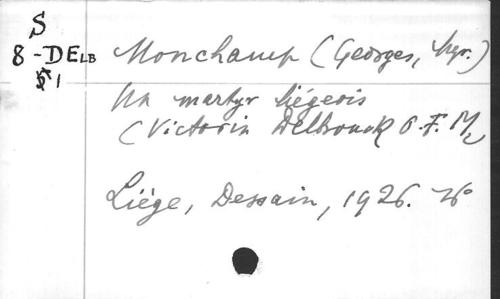 S
8 - DELB
51
Monchamp (Georges, Mgr.)
Un martyr liégeois
(Victorin Delbrouck O.F.M.)
Liége, Dessain, 1926. 8°